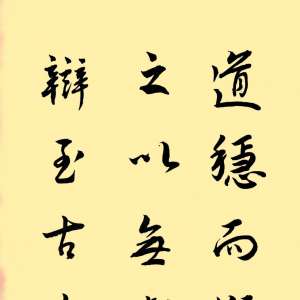 道穩而
之以無
辯至古